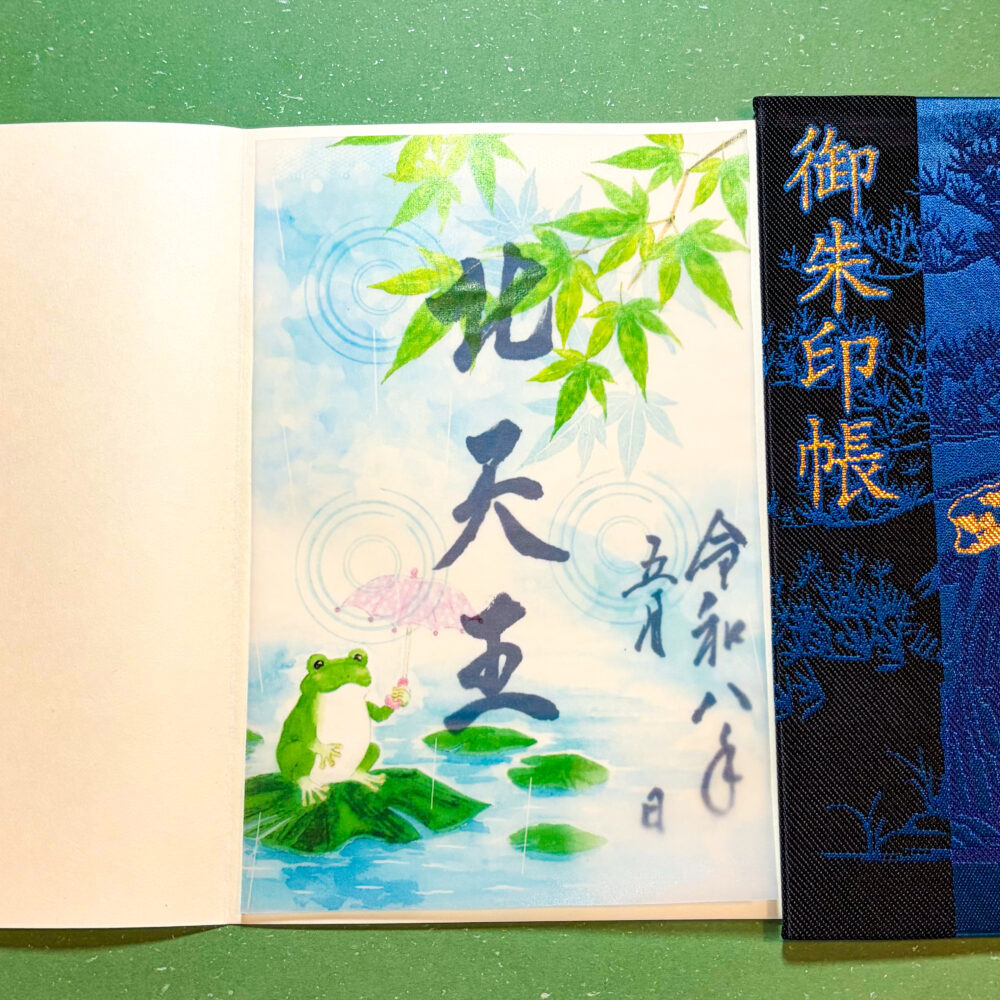 御朱印帳
北天王
令和八年
五月
日